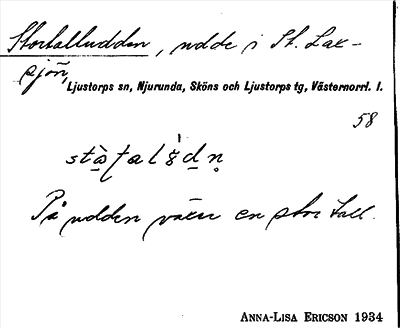 Stortalludden, udde i St. Lax-
sjön,
Ljustorps sn, Njurunda, Sköns och Ljustorps tg, Västernorrl. l.
58
På udden växer en stor tall.
ANNA-LISA ERICSON 1934